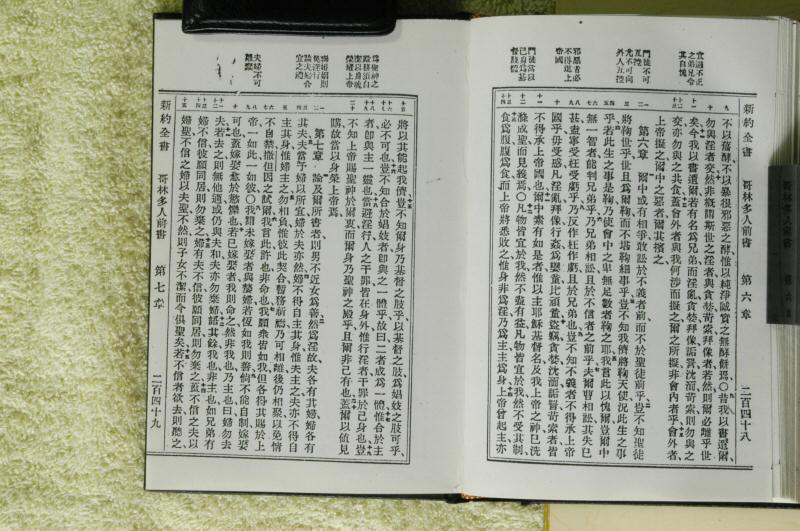 新約全書　哥林多人前書　第六章　二百四十八
不以舊酵、不以暴很邪惡之酵、惟以純淨誠實之無酵餅焉、○昔我以書遺爾、
勿與淫者交、然非槪謂斯世之淫者、與貪婪、苛索、拜像者、若然、則爾必離乎世
矣、今我以書遺爾、若有名爲兄弟、而淫亂、貪婪、拜像、詬詈、沈湎、苛索、則勿與之
交、亦勿與之共食、蓋會外者、與我何涉而擬之、爾之所擬、非會內者乎、會外者、
上帝擬之、爾中之惡者、爾其擯之、
第六章　爾中或有相爭、敢訟於不義者前、而不於聖徒前乎、豈不知聖徒
將鞫世乎、世且爲爾鞫、而不堪鞫細事乎、豈不知我儕將鞫天使、況此生之事
乎、若此生之事是鞫、乃使會中之卑無足數者鞫之耶、我言此以愧爾、爾中
無一智者、能判兄弟乎、乃兄弟相訟、且於不信者之前乎、夫爾曹相訟、其失已
甚、盍寧受枉受虧乎、乃反作枉作虧、且於兄弟也、豈不知不義者不得承上帝
國乎、毋受惑、凡淫亂、拜像、行姦、爲孌童、比頑童、盜竊、貪婪、沈湎、詬詈、苛索者、皆
不得承上帝國也、爾中素有如是者、惟以主耶穌基督名、及我上帝之神、已洗
滌成聖、而見義焉、○凡物皆宜於我、然不盡有益、凡物皆宜於我、然我不受其制、
食爲腹、腹爲食、而上帝將悉敗之、惟身非爲淫、乃爲主、主爲身、上帝曾起主、亦
宜遏不正之弟兄令其自愧
門徒不可互控
尤不可向外人互控
邪惡者必不得進上帝國
門徒當以己身爲基督肢體
新約全書　哥林多人前書　第七章　二百四十九
將以其能起我儕、豈不知爾身乃基督之肢乎、以基督之肢爲娼妓之肢可乎、
必不可也、豈不知合於娼妓者、卽與之一體乎、故曰、二者成爲一體、惟合於主
者、卽與主一靈也、當避淫行、人之干罪、皆在身外、惟行淫者、干罪於己身也、豈
不知上帝賜聖神於爾衷、而爾身乃聖神之殿乎、且爾非己有也、蓋爾以値見
購、故當以身榮上帝焉、
第七章　論及爾所書者、則男不近女爲善、然爲淫故、夫各有其婦、婦各有
其夫、夫當予婦以所宜、婦於夫亦然、婦不得自主其身、惟夫主之、夫亦不得自
主其身、惟婦主之、勿相負、惟彼此契合、暫務祈禱、乃可相離、後仍相聚、以免情
不自禁、撒但因之試爾、我言此、許也、非命也、我願衆皆如我、但各得其賜於上
帝、一如此、一如彼、○我謂未嫁娶者與嫠婦、若恆如我則善、倘不能自制、嫁娶
可也、蓋嫁娶愈於慾燬也、若已嫁娶者、我則命之、然非我也、乃主也、曰、婦勿去
夫、若去之、則無他適、或仍與夫和、夫亦勿棄婦、○其餘我也、非主也、如兄弟有
婦不信、彼願同居、則勿棄之、婦有夫不信、彼願同居、則勿棄之、蓋不信之夫以
婦聖、不信之婦以夫聖、不然、則子女不潔、而今俱聖矣、若不信者欲去、則聽之、
聖以身歸榮上帝
宜之禮
夫婦不可離棄